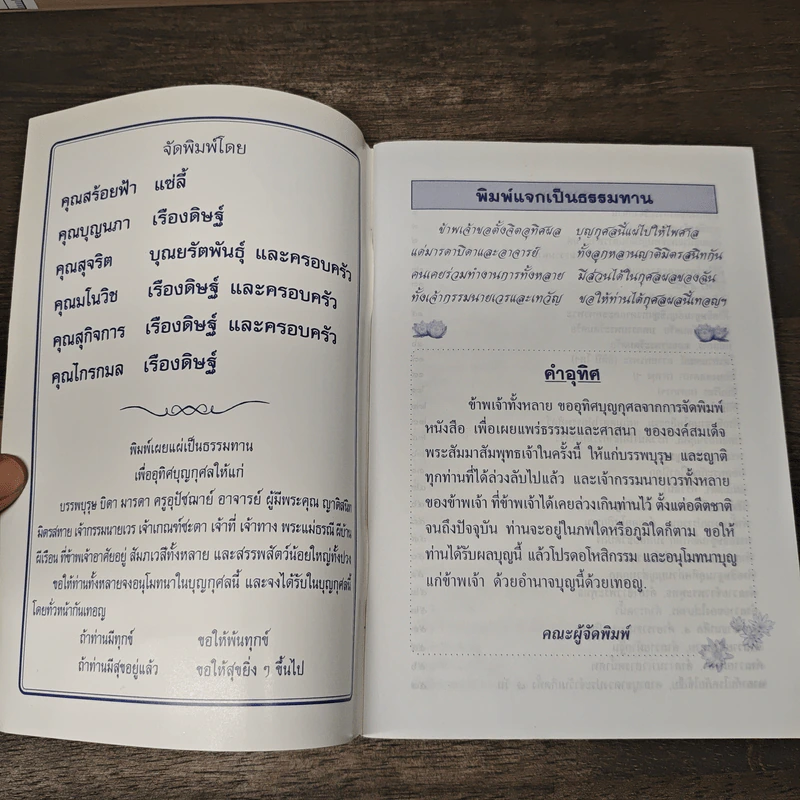 จัดพิมพ์โดย
คุณสร้อยฟ้า แซ่ลี้
คุณบุญนภา เรืองดิษฐ์
คุณสุจริต บุณยรัตพันธุ์ และครอบครัว
คุณมโนวิช เรืองดิษฐ์ และครอบครัว
คุณสุกิจการ เรืองดิษฐ์ และครอบครัว
คุณไกรกมล เรืองดิษฐ์
พิมพ์เผยแผ่เป็นธรรมทาน
เพื่ออุทิศบุญกุศลให้แก่
บรรพบุรุษ บิดา มารดา ครูอุปัชฌาย์ อาจารย์ ผู้มีพระคุณ ญาติสนิท
มิตรสหาย เจ้ากรรมนายเวร เจ้าเกณฑ์ชะตา เจ้าที่ เจ้าทาง พระแม่ธรณี ผีบ้าน
ผีเรือน ที่ข้าพเจ้าอาศัยอยู่ สัมภเวสีทั้งหลาย และสรรพสัตว์น้อยใหญ่ทั้งปวง
ขอให้ท่านทั้งหลายจงอนุโมทนาในบุญกุศลนี้ และจงได้รับในบุญกุศลนี้
โดยทั่วหน้ากันเทอญ
ถ้าท่านมีทุกข์ ขอให้พ้นทุกข์
ถ้าท่านมีสุขอยู่แล้ว ขอให้สุขยิ่ง ๆ ขึ้นไป
พิมพ์แจกเป็นธรรมทาน
ข้าพเจ้าขอตั้งจิตอุทิศผล บุญกุศลนี้แผ่ไปให้ไพศาล
แด่มารดาบิดาและอาจารย์ ทั้งลูกหลานญาติมิตรสนิทกัน
คนเคยร่วมทำงานการทั้งหลาย มีส่วนได้ในกุศลผลของฉัน
ทั้งเจ้ากรรมนายเวรและเทวัญ ขอให้ท่านได้กุศลผลนี้เทอญฯ
คำอุทิศ
ข้าพเจ้าทั้งหลาย ขออุทิศบุญกุศลจากการจัดพิมพ์
หนังสือ เพื่อเผยแพร่ธรรมะและศาสนา ขององค์สมเด็จ
พระสัมมาสัมพุทธเจ้าในครั้งนี้ ให้แก่บรรพบุรุษ และญาติ
ทุกท่านที่ได้ล่วงลับไปแล้ว และเจ้ากรรมนายเวรทั้งหลาย
ของข้าพเจ้า ที่ข้าพเจ้าได้เคยล่วงเกินท่านไว้ ตั้งแต่อดีตชาติ
จนถึงปัจจุบัน ท่านจะอยู่ในภพใดหรือภูมิใดก็ตาม ขอให้
ท่านได้รับผลบุญนี้ แล้วโปรดอโหสิกรรม และอนุโมทนาบุญ
แก่ข้าพเจ้า ด้วยอำนาจบุญนี้ด้วยเทอญ.
คณะผู้จัดพิมพ์